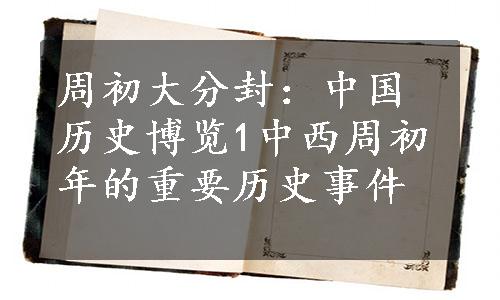 周初大分封：中国
历史博览1中西周初
年的重要历史事件